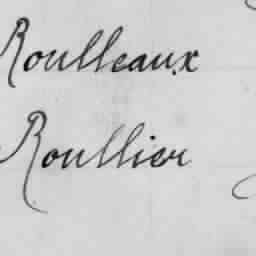 Roulleaux
Roullier